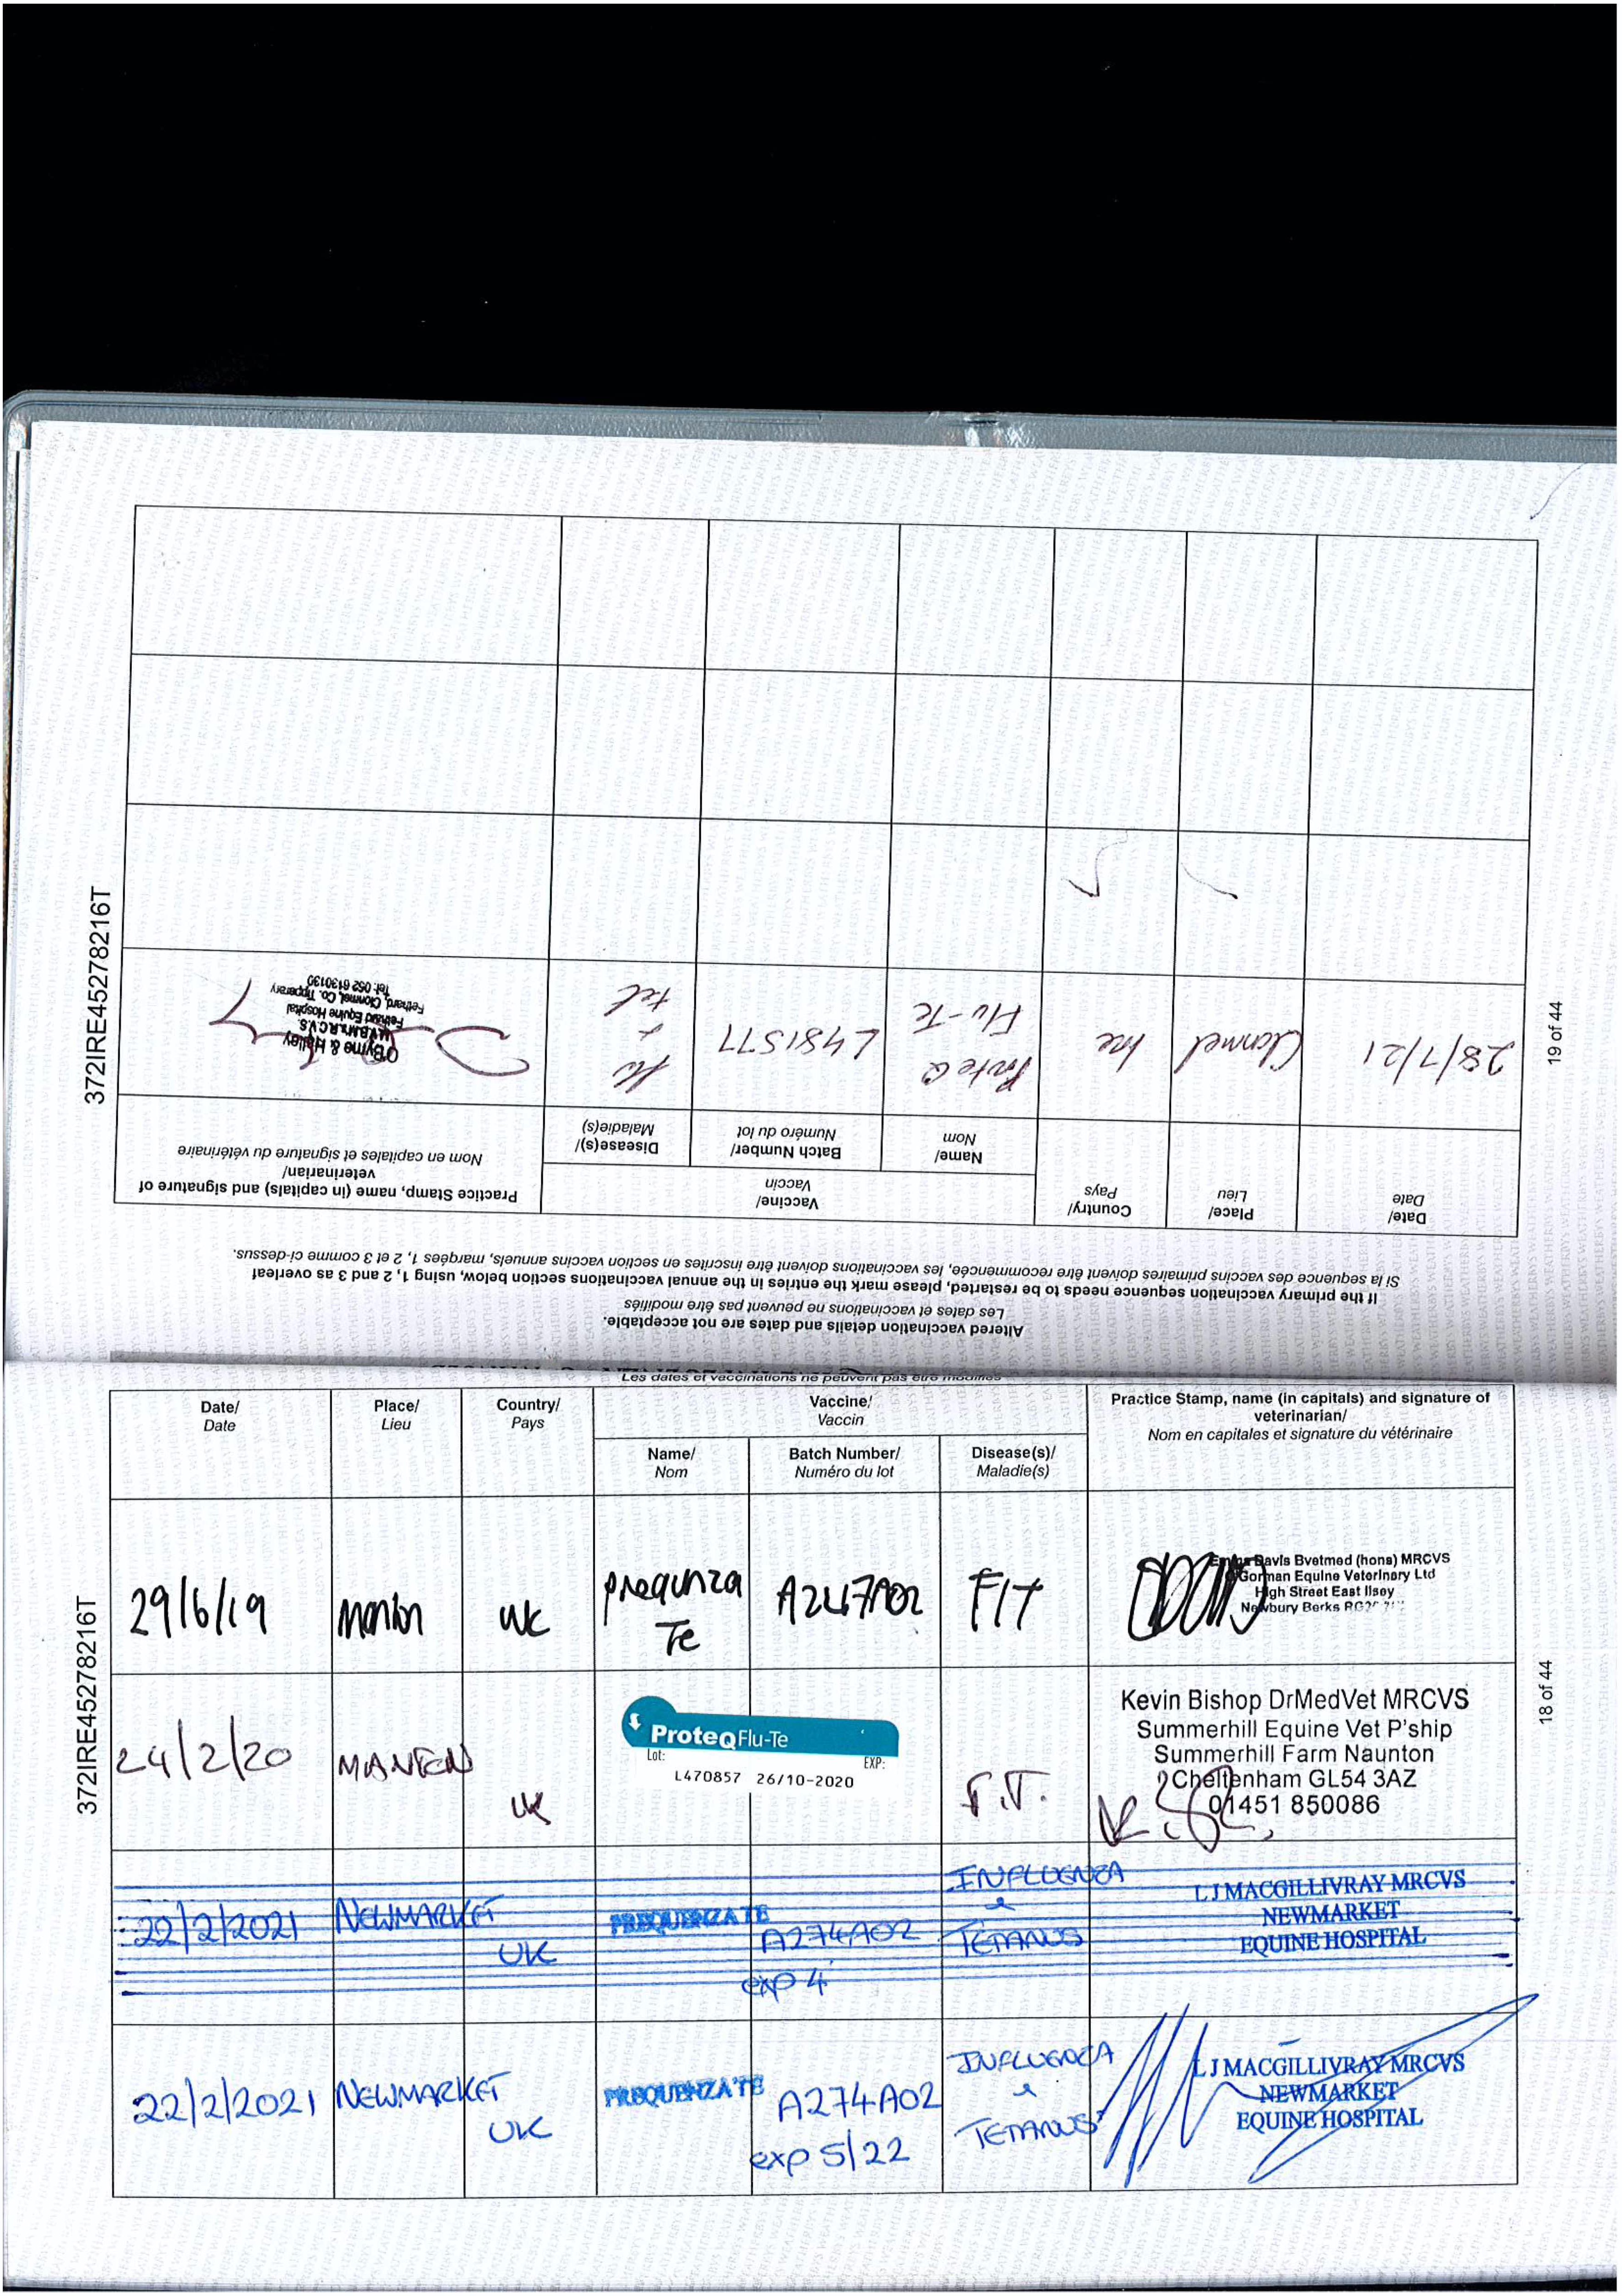 372IRE45278216T
18 of 44
Les dates et vaccinations ne peuvent pas être modifiés
Date/
Date
Place/
Lieu
Country/
Pays
Vaccine/
Vaccin
Name/
Nom
Batch Number/
Numéro du lot
Disease(s)/
Maladie(s)
Practice Stamp, name (in capitals) and signature of
veterinarian/
Nom en capitales et signature du vétérinaire
29/6/19
Manton
UK
prequnza
Te
A247A02
F/T
Davis Bvetmed (hons) MRCVS
Gorman Equine Veterinary Ltd
High Street East Ilsey
Newbury Berks
24/2/20
MANTON
UK
ProteQFlu-Te
Lot:
EXP:
L470857 26/10-2020
F.T.
Kevin Bishop DrMedVet MRCVS
Summerhill Equine Vet P'ship
Summerhill Farm Naunton
Cheltenham GL54 3AZ
01451 850086
22/2/2021
NEWMARKET
UK
PREQUENZA TE
A274A02
exp 4
INFLUENZA
&
TETANUS
L J MACGILLIVRAY MRCVS
NEWMARKET
EQUINE HOSPITAL
22/2/2021
NEWMARKET
UK
PREQUENZA TE
A274A02
exp 5/22
INFLUENZA
&
TETANUS
L J MACGILLIVRAY MRCVS
NEWMARKET
EQUINE HOSPITAL
Altered vaccination details and dates are not acceptable.
Les dates et vaccinations ne peuvent pas être modifiés
If the primary vaccination sequence needs to be restarted, please mark the entries in the annual vaccinations section below, using 1, 2 and 3 as overleaf
Si la sequence des vaccins primaires doivent être recommencée, les vaccinations doivent être inscrites en section vaccins annuels, marqées 1, 2 et 3 comme ci-dessus.
Date/
Date
Place/
Lieu
Country/
Pays
Vaccine/
Vaccin
Name/
Nom
Batch Number/
Numéro du lot
Disease(s)/
Maladie(s)
Practice Stamp, name (in capitals) and signature of
veterinarian/
Nom en capitales et signature du vétérinaire
28/7/21
Clonmel
Ire
ProteQ
Flu-Te
L481577
flu
+
tet
O'Byrne & Halley
M.V.B.M's.R.C.V.S.
Fethard Equine Hospital
Fethard, Clonmel, Co. Tipperary
Tel: 052 6130139
19 of 44
372IRE45278216T